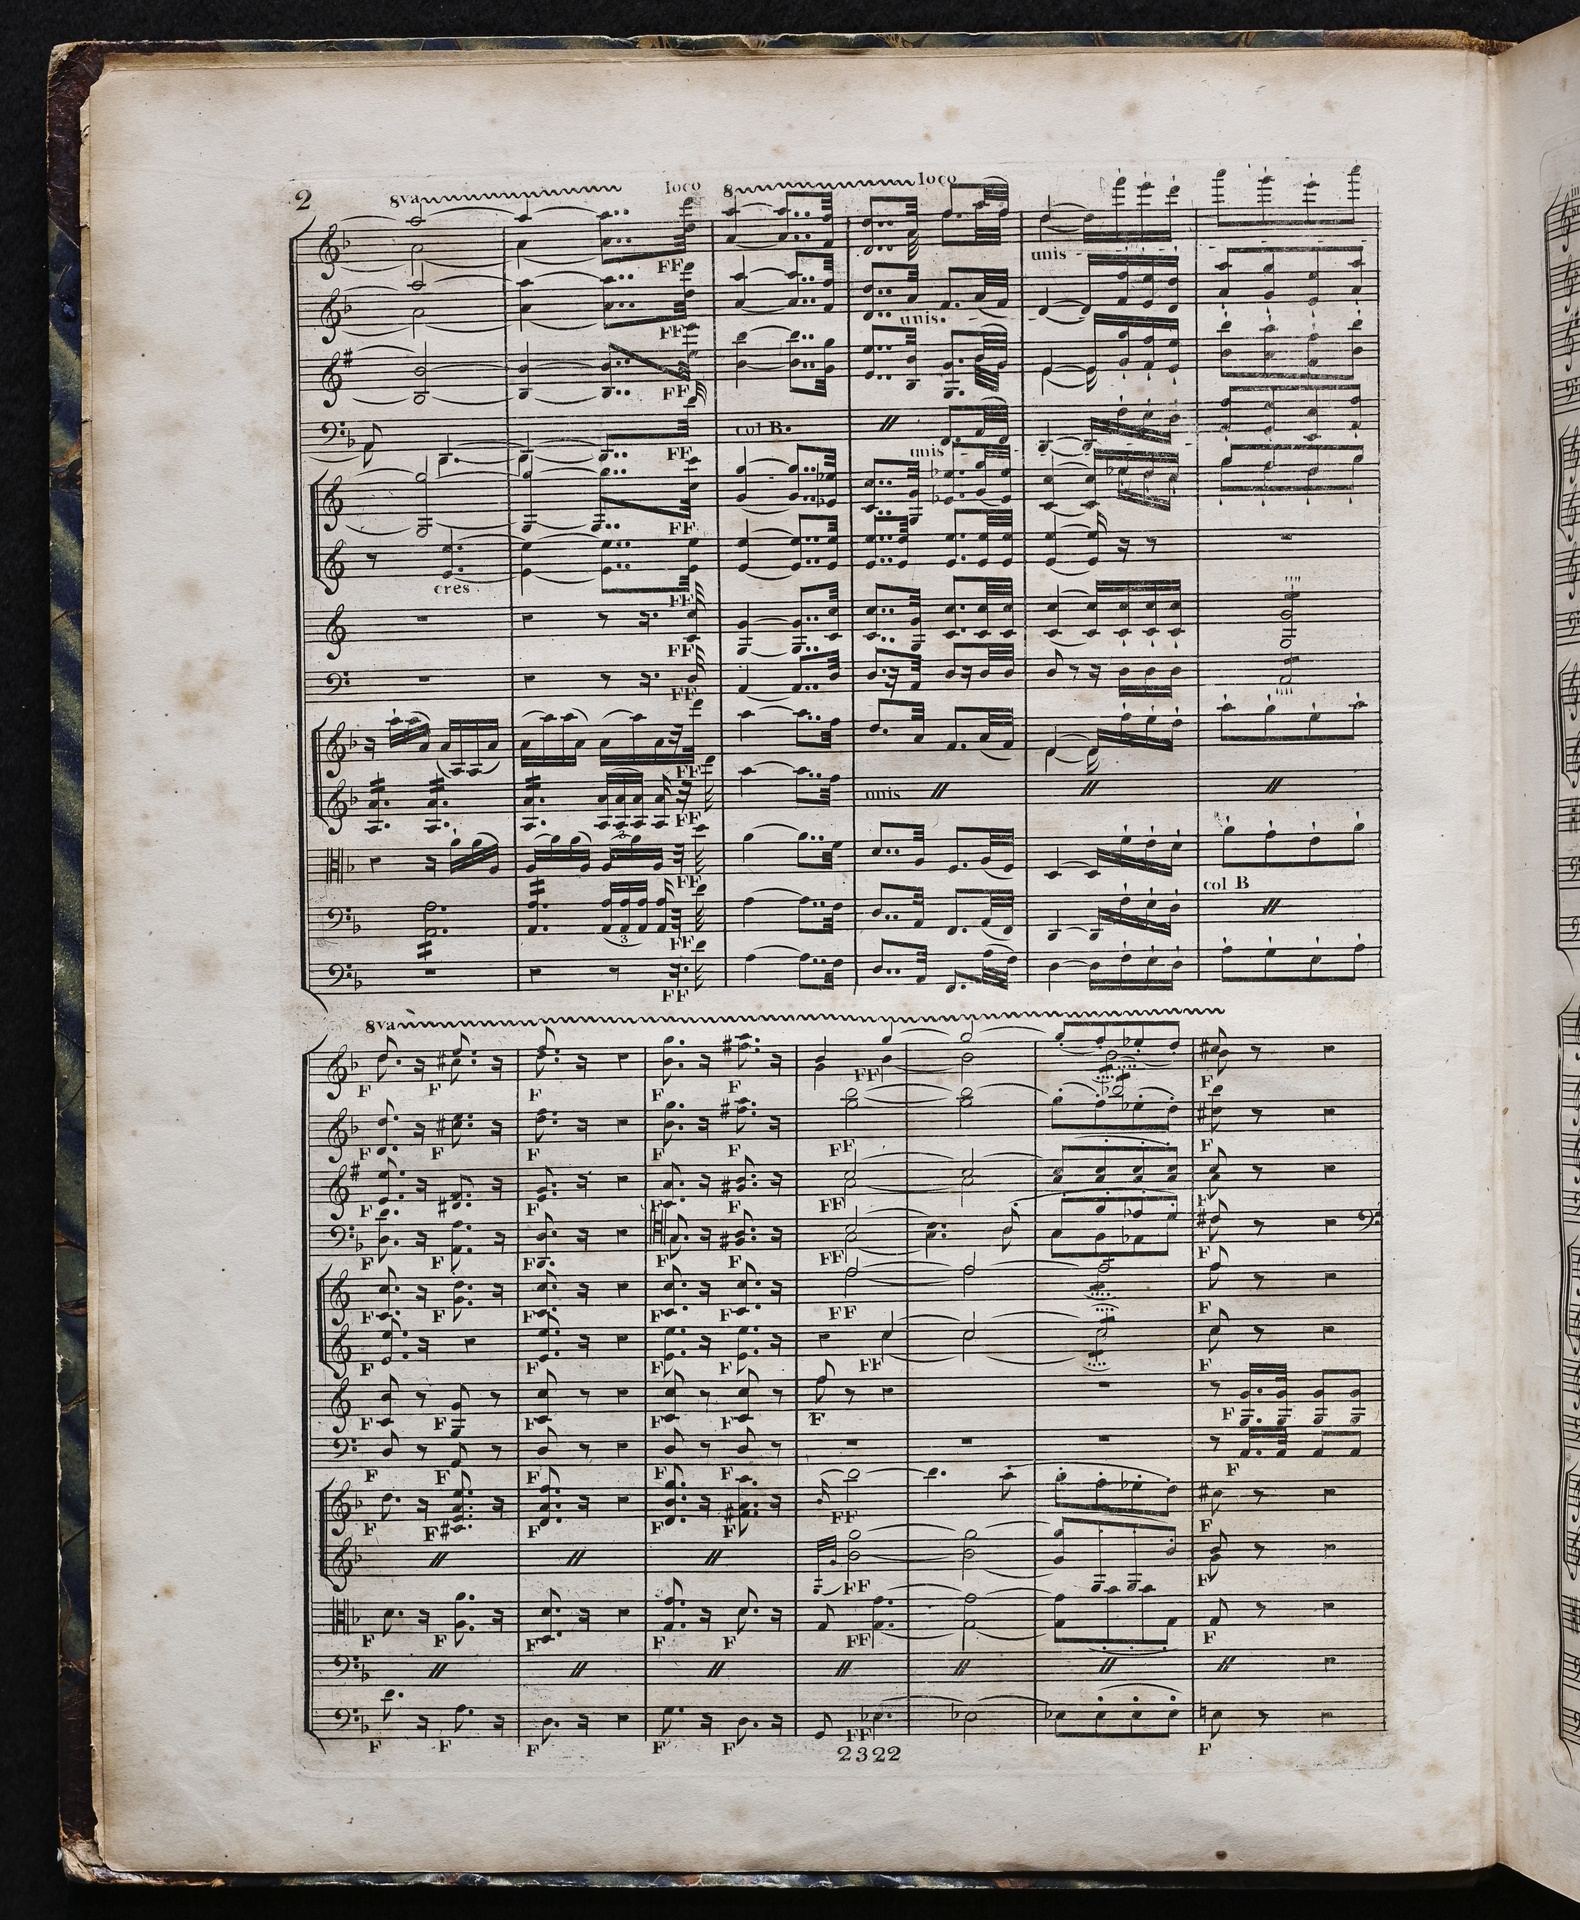 2
8va loco 8 loco
unis
FF
FF
unis.
FF
col B.
FF
unis
FF
cres
FF
FF
FF
FF
unis
FF
3
FF
col B
3
FF
FF
8va
F F F F F FF F
F F F F FF F
F F F F FF F
F F F F F FF F
F F F F F FF F
F F F FF F
F F F F F F F
F F F F F F
F F F F F FF F
FF F
F F F F F FF F
F F F F F FF F
2322